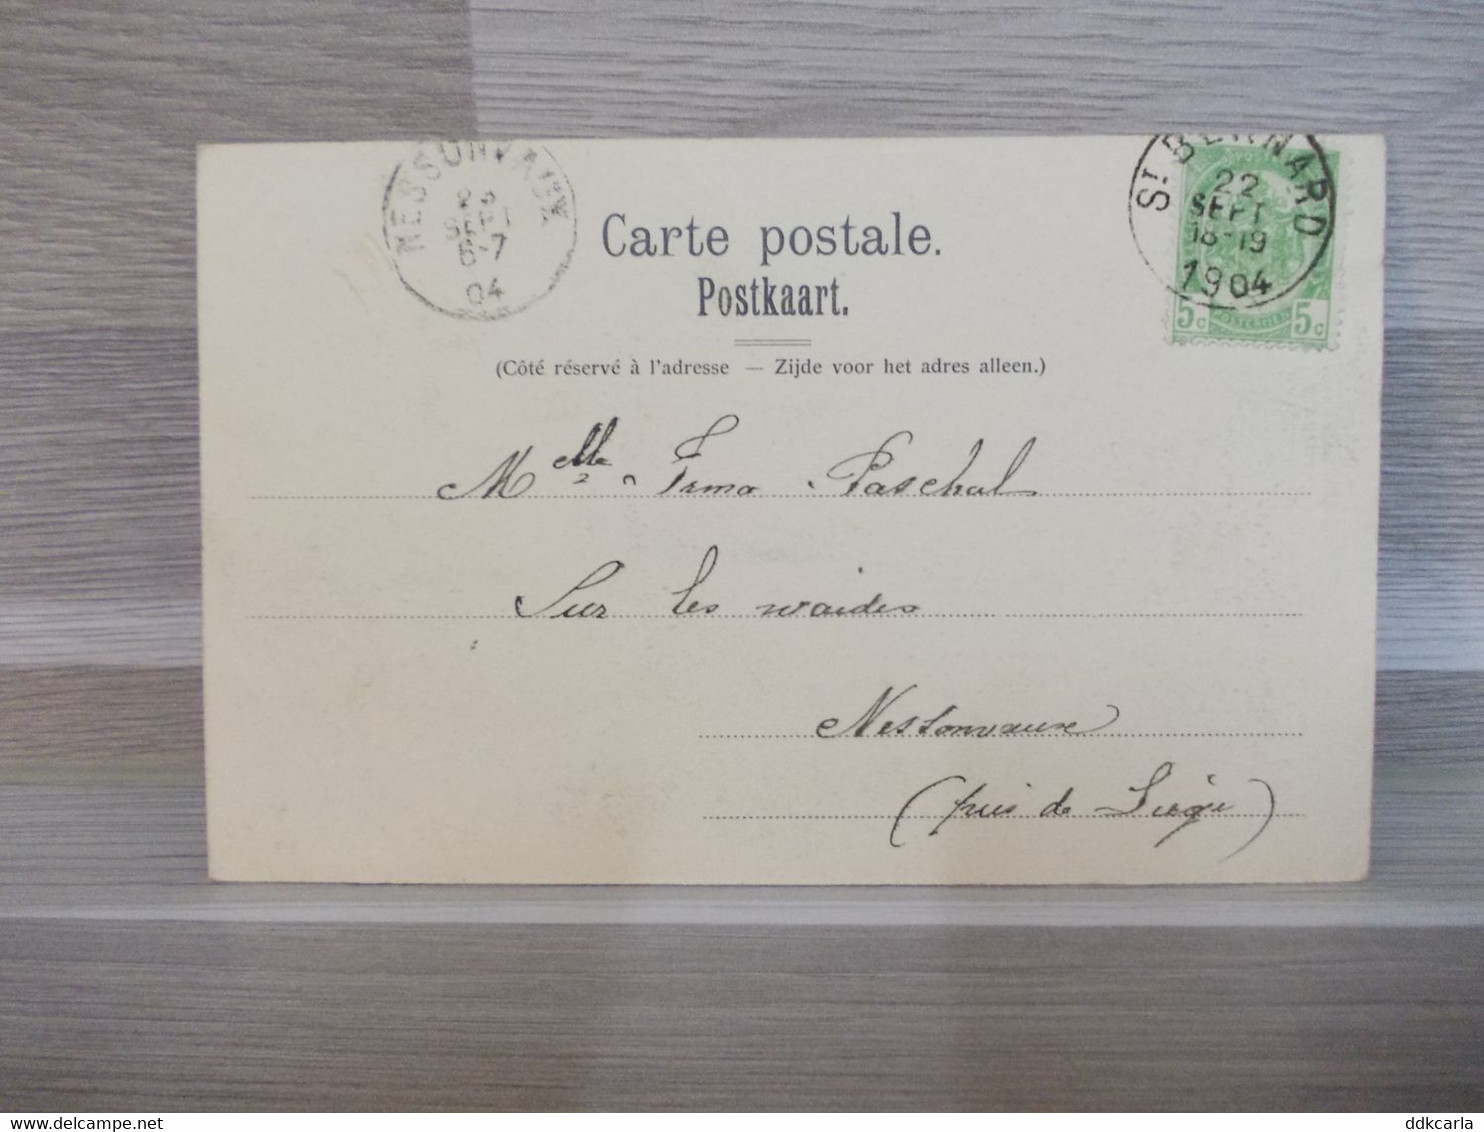 NESSONVAUX
SEPT
04
St BERNARD
22
SEPT
18-19
1904
5c POSTERIJEN 5c
Carte postale.
Postkaart.
(Côté réservé à l'adresse — Zijde voor het adres alleen.)
Melle Irma Paschal
Sur les waides
Nessonvaux
(près de Liège)
ddkcarla